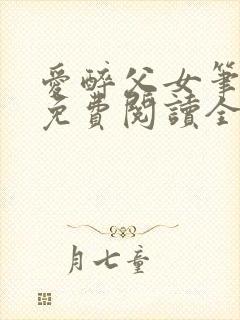 愛醉父女筆
免費閱讀全
月七童